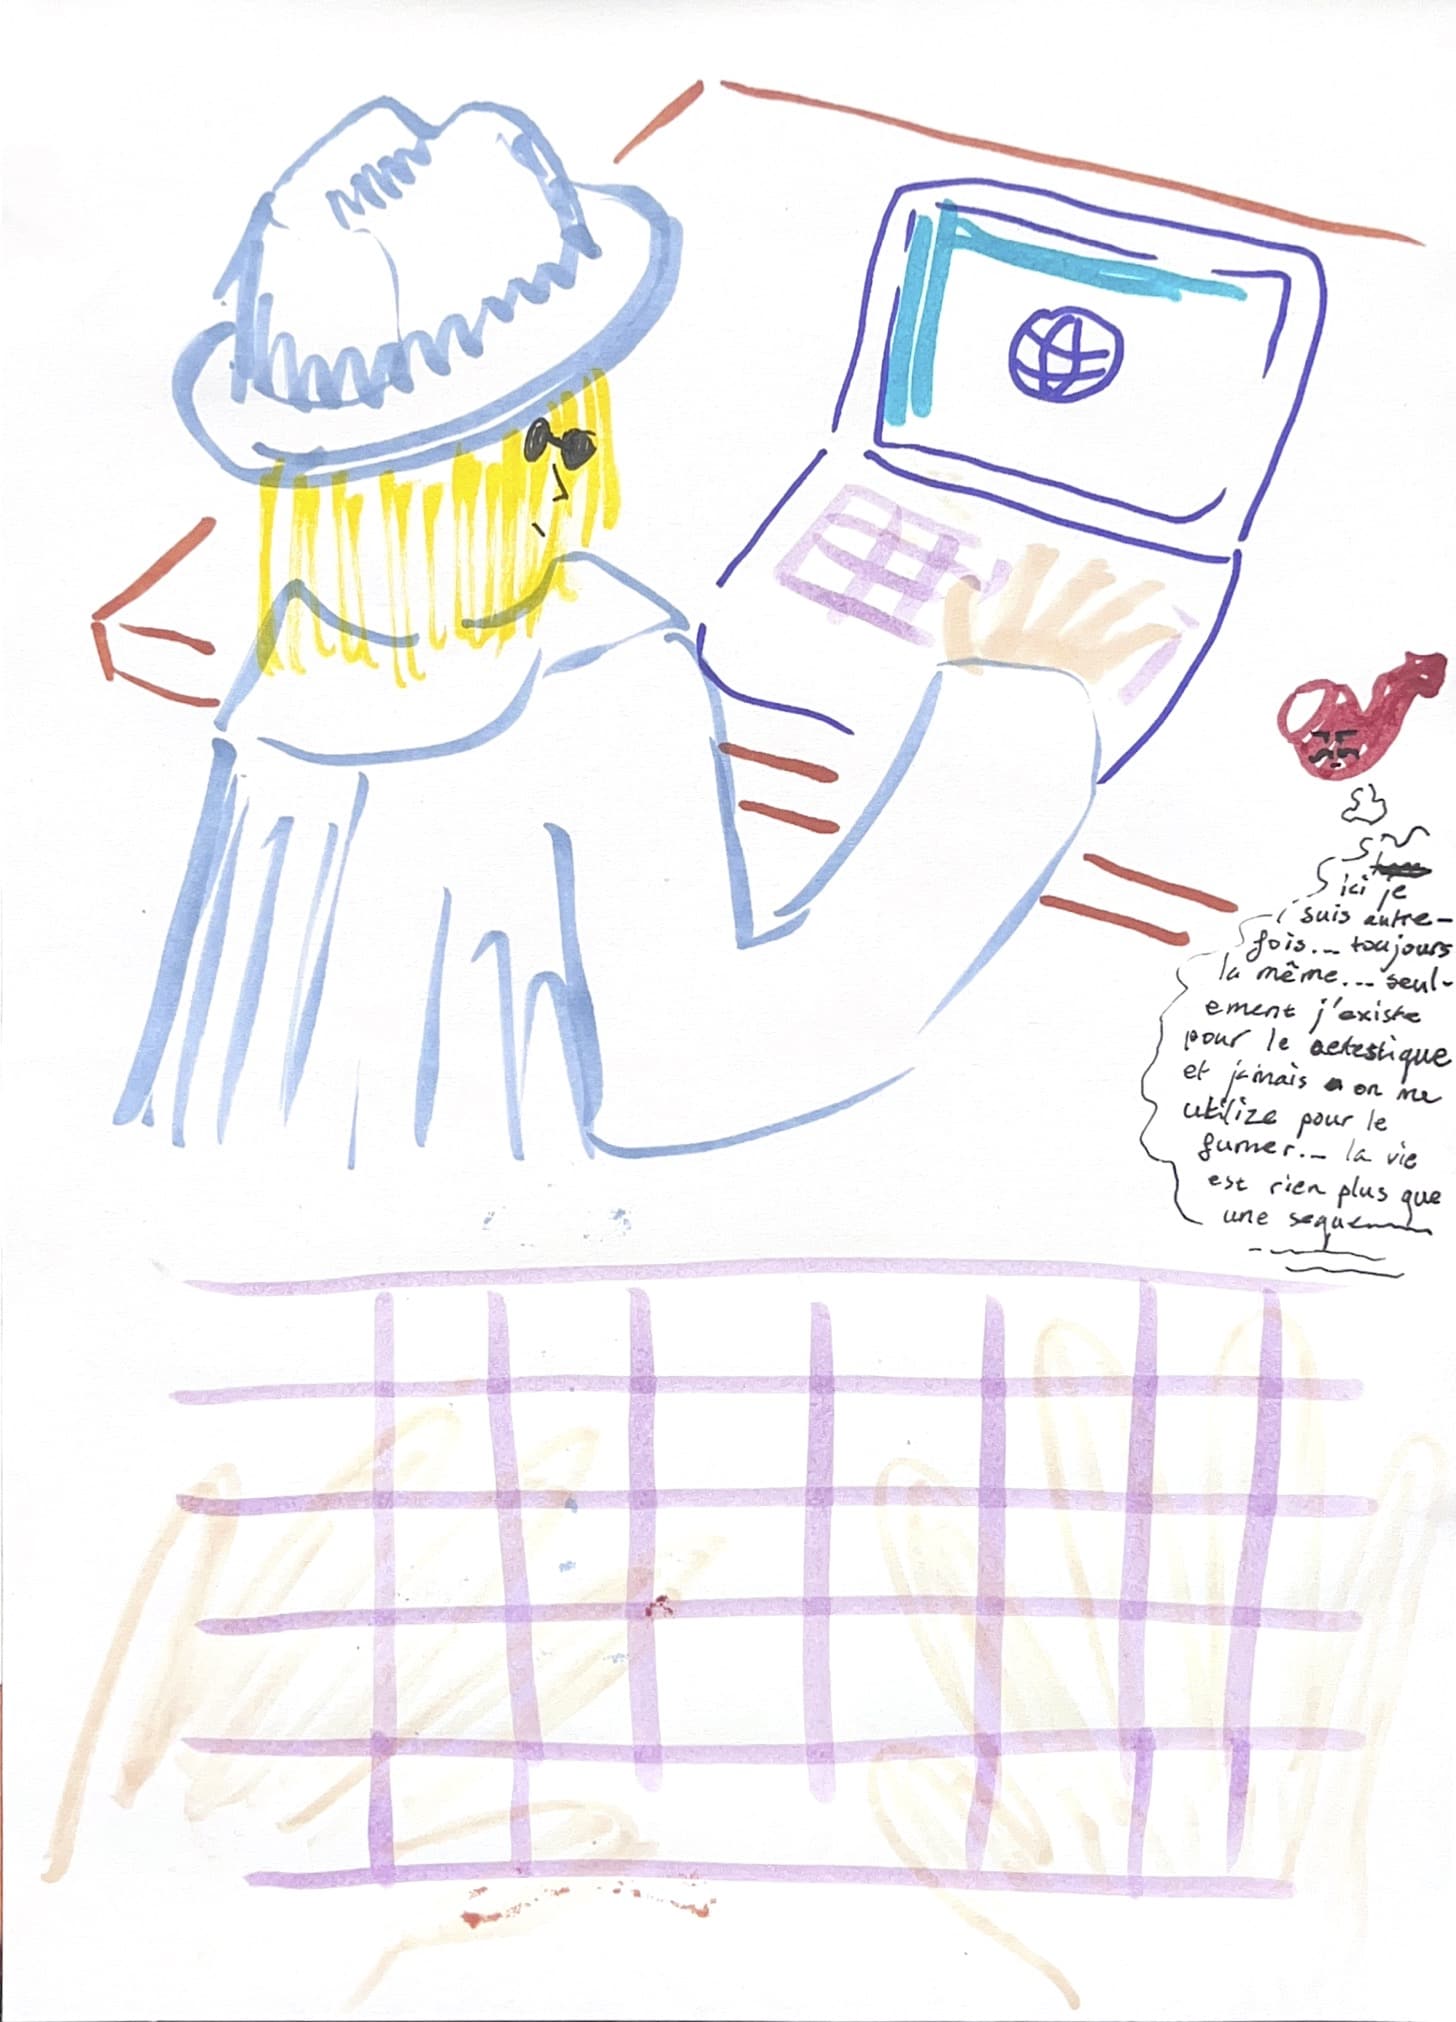 ici je
suis autre-
fois... toujours
la même... seul-
ement j'existe
pour le
et jamais on me
utilize pour le
fumer... la vie
est rien plus que
une